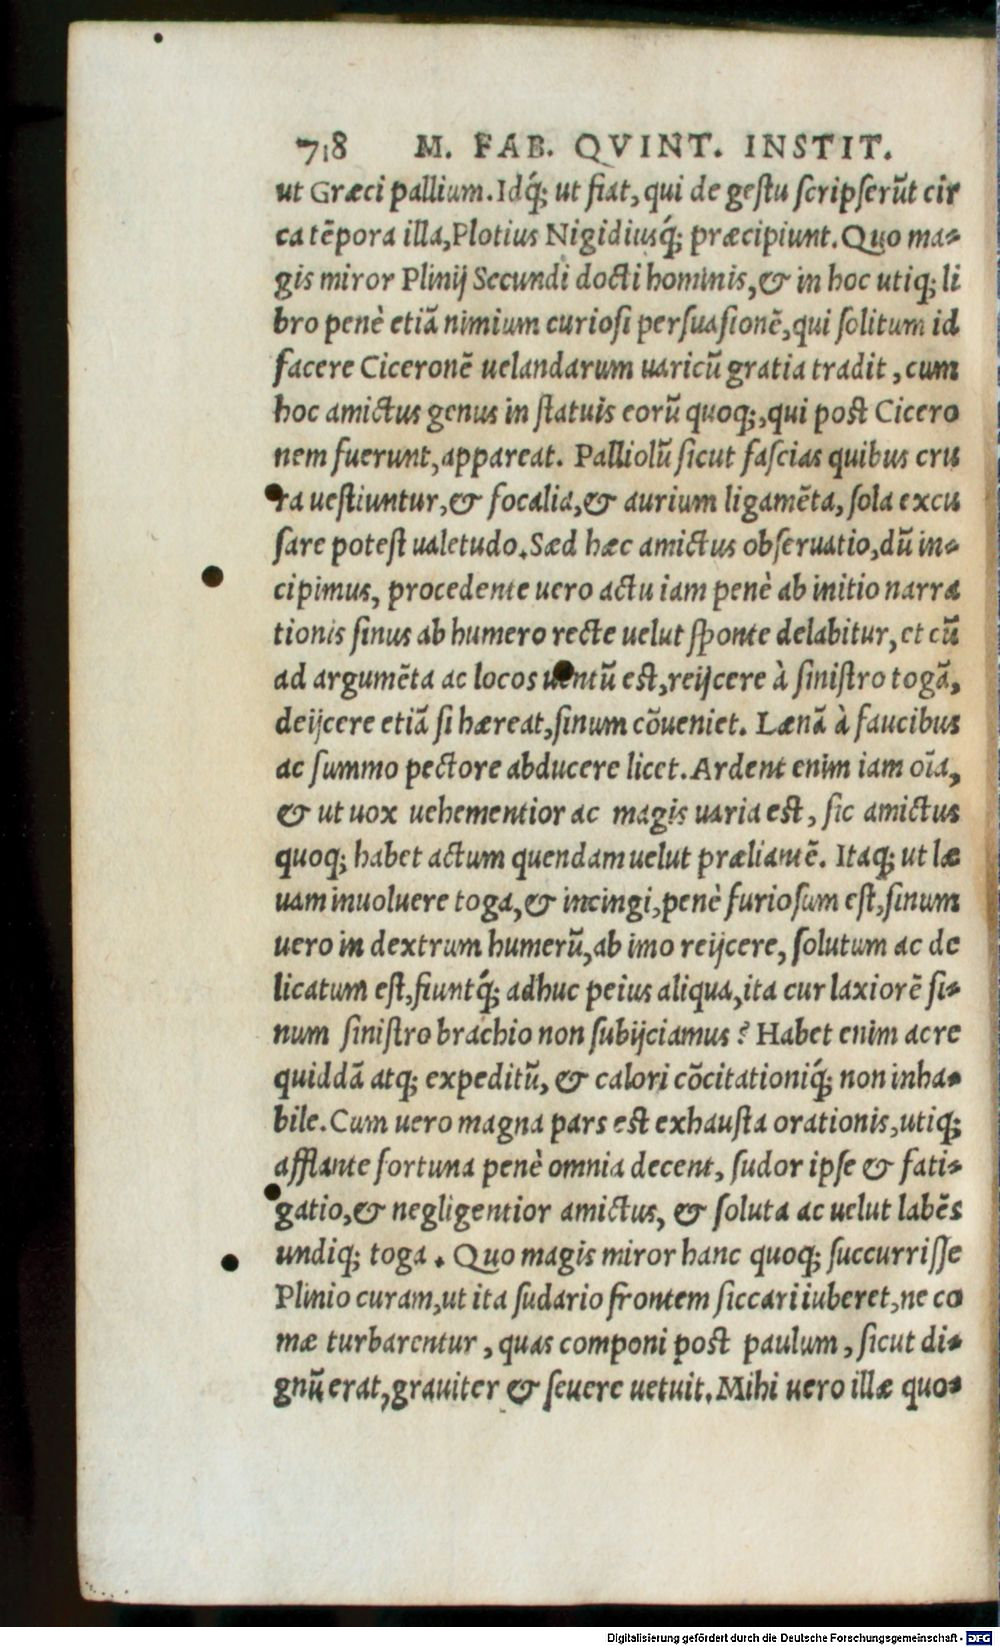 718 M. FAB. QVINT. INSTIT.
ut Græci pallium. Idq́; ut fiat, qui de gestu scripserũt cir
ca tẽpora illa, Plotius Nigidiusq́; præcipiunt. Quo ma-
gis miror Plinij Secundi docti hominis, & in hoc utiq; li
bro penè etiã nimium curiosi persuasionẽ, qui solitum id
facere Ciceronẽ uelandarum uaricũ gratia tradit, cum
hoc amictus genus in statuis eorũ quoq;, qui post Cicero
nem fuerunt, appareat. Palliolũ sicut fascias quibus cru
ra uestiuntur, & focalia, & aurium ligamẽta, sola excu
sare potest ualetudo. Sæd hæc amictus obseruatio, dũ in-
cipimus, procedente uero actu iam penè ab initio narra
tionis sinus ab humero recte uelut sponte delabitur, et cũ
ad argumẽta ac locos uentũ est, reijcere à sinistro togã,
deijcere etiã si hæreat, sinum cõueniet. Lænã à faucibus
ac summo pectore abducere licet. Ardent enim iam oĩa,
& ut uox uehementior ac magis uaria est, sic amictus
quoq; habet actum quendam uelut præliantẽ. Itaq; ut læ
uam inuoluere toga, & incingi, penè furiosum est, sinum
uero in dextrum humerũ, ab imo reijcere, solutum ac de
licatum est, fiuntq́; adhuc peius aliqua, ita cur laxiorẽ si-
num sinistro brachio non subijciamus? Habet enim acre
quiddã atq; expeditũ, & calori cõcitationiq́; non inha-
bile. Cum uero magna pars est exhausta orationis, utiq;
afflante fortuna penè omnia decent, sudor ipse & fati-
gatio, & negligentior amictus, & soluta ac uelut labẽs
undiq; toga. Quo magis miror hanc quoq; succurrisse
Plinio curam, ut ita sudario frontem siccari iuberet, ne co
mæ turbarentur, quas componi post paulum, sicut di-
gnũ erat, grauiter & seuere uetuit. Mihi uero illæ quo-
Digitalisierung gefördert durch die Deutsche Forschungsgemeinschaft - DFG